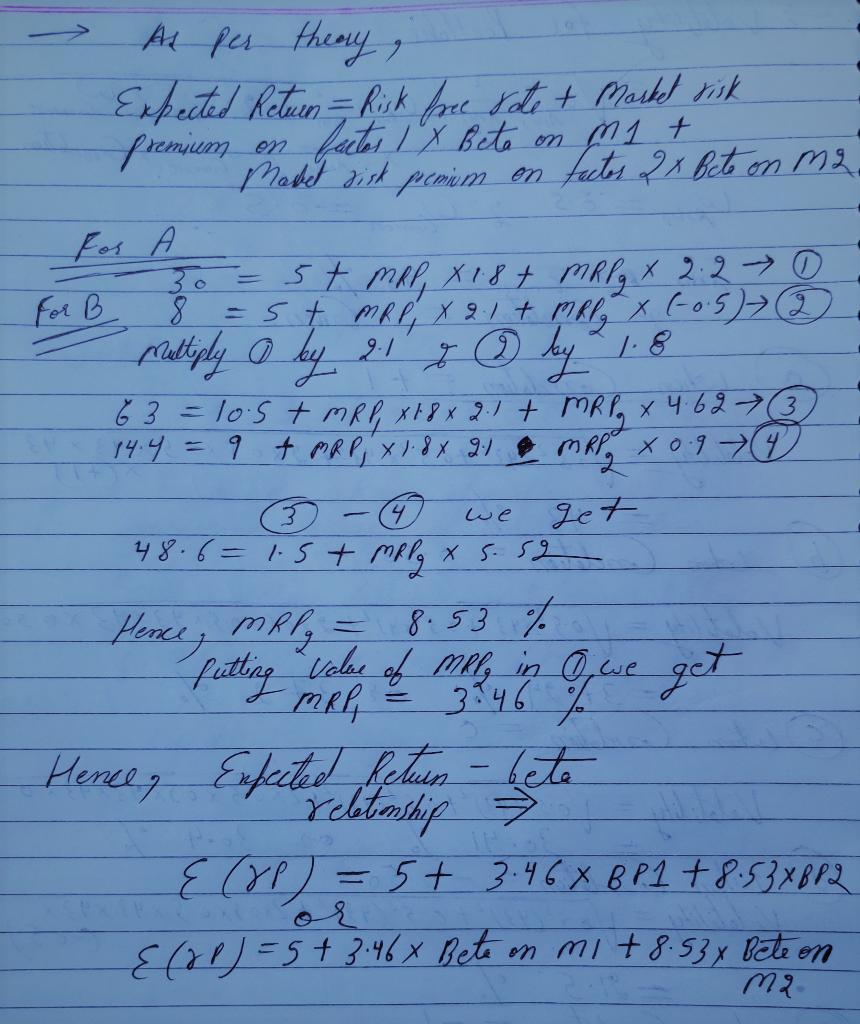 → As per theory,
Expected Return = Risk free rate + Market risk
premium on factor 1 X Beta on M1 +
Market risk premium on factor 2 x Beta on M2
For A
30 = 5 + MRP1 X 1.8 + MRP2 X 2.2 → ①
For B 8 = 5 + MRP1 X 2.1 + MRP2 X (-0.5) → ②
Multiply ① by 2.1 & ② by 1.8
63 = 10.5 + MRP1 X1.8 X 2.1 + MRP2 X 4.62 → ③
14.4 = 9 + MRP1 X 1.8 X 2.1 - MRP2 X 0.9 → ④
③ - ④ we get
48.6 = 1.5 + MRP2 X 5.52
Hence, MRP2 = 8.53 %
Putting value of MRP2 in ①, we get
MRP1 = 3.46 %
Hence, Expected Return - beta
relationship ⇒
E(rP) = 5 + 3.46 X BP1 + 8.53XBP2
or
E(rP) = 5 + 3.46 X Beta on M1 + 8.53 x Beta on
M2